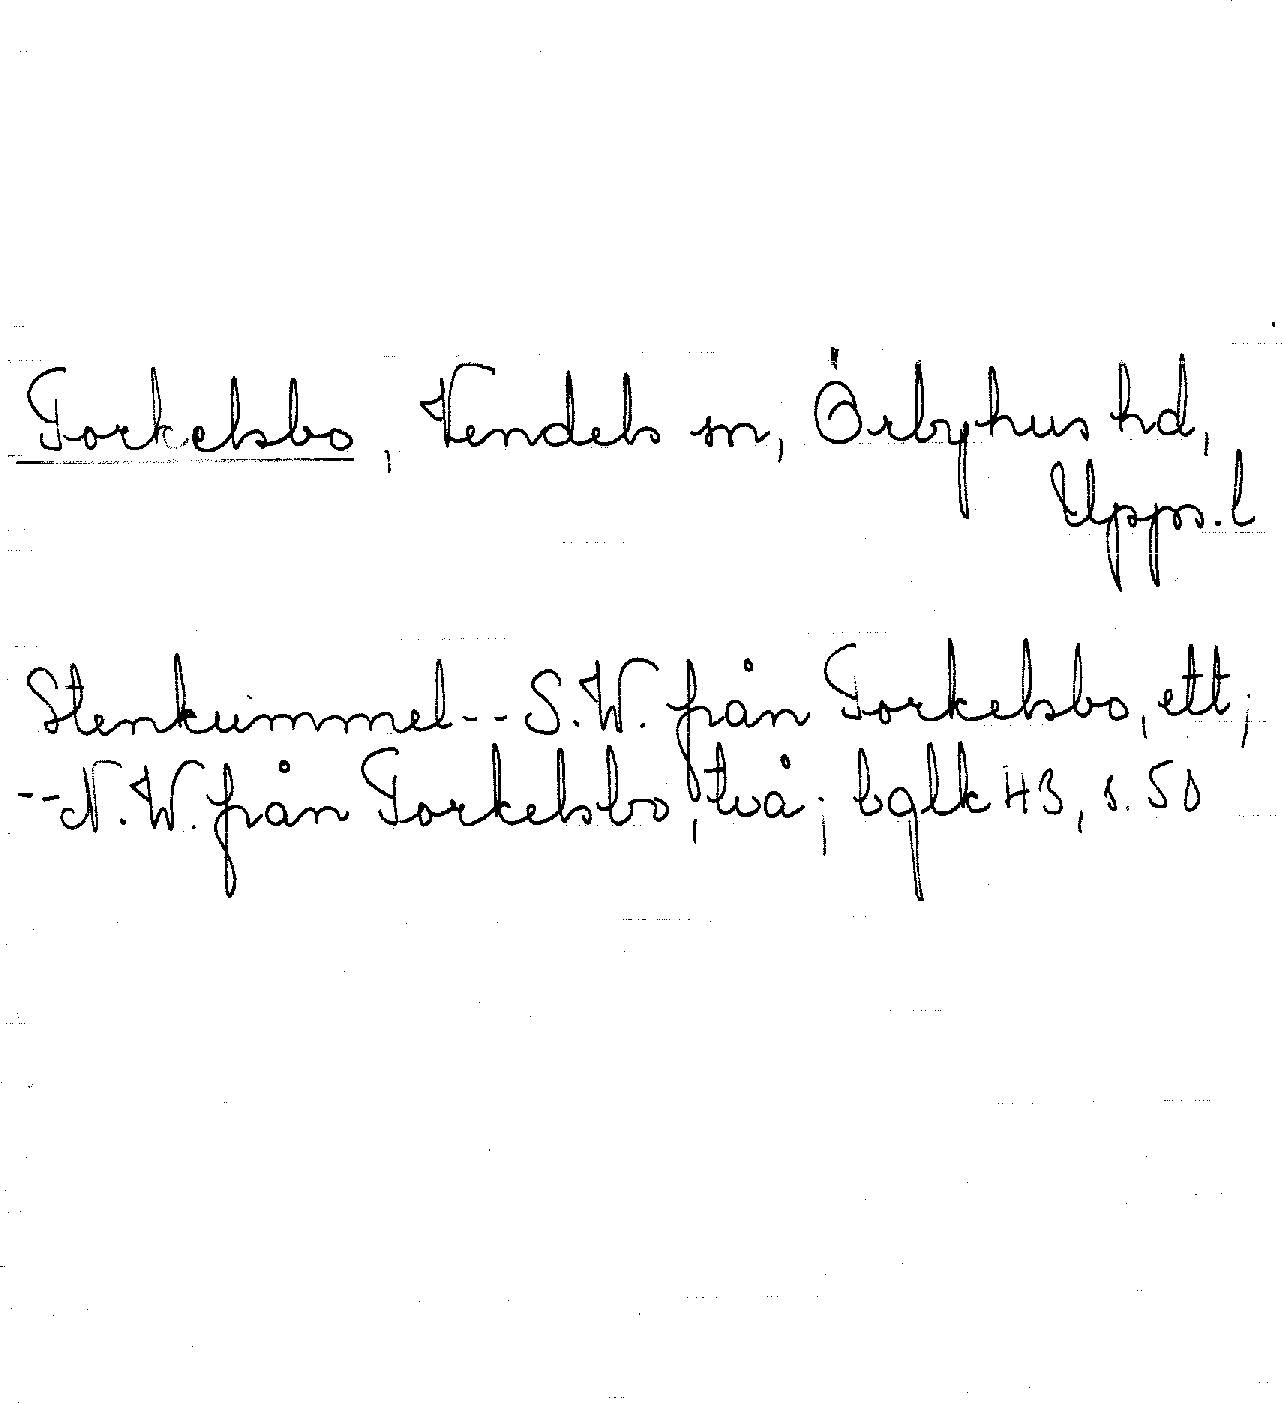 Torkelsbo, Vendels sn, Örbyhus hd,
Upps. l
Stenkummel -- S.W. från Torkelsbo, ett;
-- N.W. från Torkelsbo, två; bglk 43, s. 50